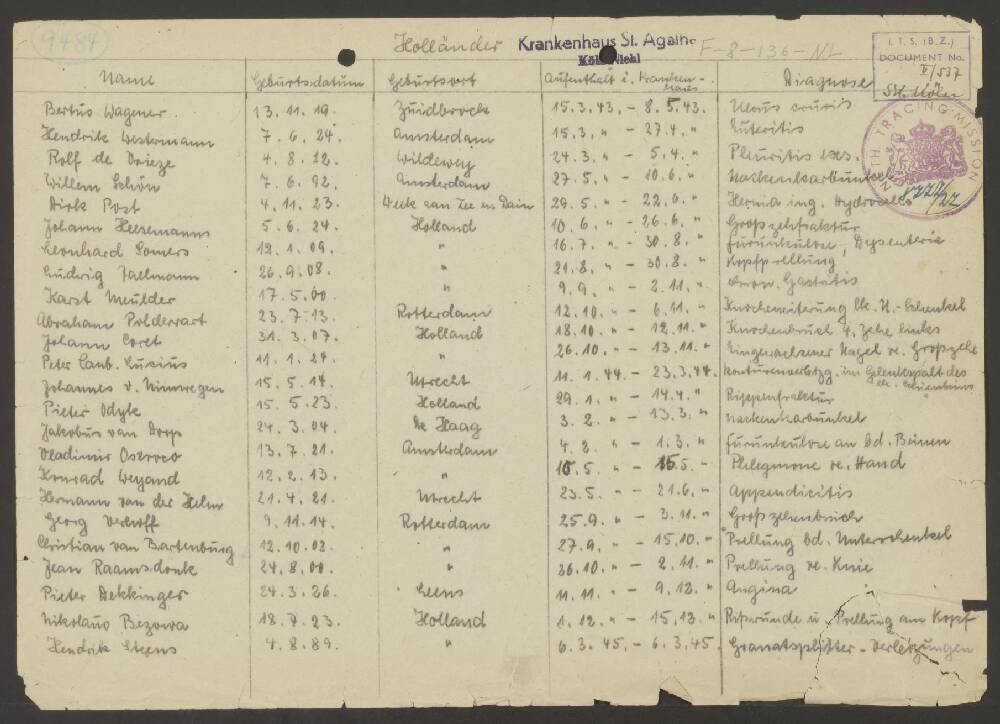 (9484)
Holländer Krankenhaus St. Agathe F-8-136-NL
Köln-Niehl
I. T. S. (B.Z.)
DOCUMENT No.
II/537
St. Köln
TRACING MISSION
Name Geburtsdatum Geburtsort Aufenthalt i. Kranken-haus Diagnose
Bertus Wagener 13.11.19. Zuidbroock 15.3.43. - 8.5.43. Ulcus cruris
Hendrik Westermann 7.6.24. Amsterdam 15.3. " - 27.4. " Enteritis
Rolf de Vrieze 4.8.22. Wildewey 24.3. " - 5.4. " Pleuritis exs.
Willem Schön 7.6.92. Amsterdam 27.5. " - 10.6. " Nackenkarbunkel
Dirk Post 4.11.23. Week aan Zee en Duin 29.5. " - 22.6. " Hernia ing. Hydrocele
Johann Heesemanns 5.6.24. Holland 10.6. " - 26.6. " Großzehfraktur
Leonhard Somers 12.1.09. " 16.7. " - 30.8. " Furunkulose, Dysenterie
Ludwig Tallmann 26.9.08. " 21.8. " - 30.8. " Kopfprellung
Karst Meulder 17.5.00. " 9.9. " - 2.11. " chron. Gastritis
Abraham Poldervart 23.7.13. Rotterdam 12.10. " - 6.11. " Knocheneiterung lk. U.-Schenkel
Johann Coret 31.3.07. Holland 18.10. " - 12.11. " Knochenbruch 4. Zehe links
Peter Lamb. Lucius 11.1.24. " 26.10. " - 13.11. " Eingewachsener Nagel re. Großzehe
Johannes v. Nimwegen 15.5.14. Utrecht 11.1.44. - 23.3.44. im Gelenkspalt des
Pieter Odyk 15.5.23. Holland 29.1. " - 14.4. " Rippenfraktur
Jakobus van Dorp 24.3.04. De Haag 3.2. " - 13.3. " Nackenkarbunkel
Vladimir Oseroco 13.7.21. Amsterdam 4.2. " - 1.3. " Furunkulose an bd. Beinen
Konrad Weyand 12.2.13. " 15.5. " - 15.5. - Phlegmone re. Hand
Hermann van der Helm 21.4.21. Utrecht 23.5. " - 21.6. " Appendicitis
Georg Verhoff 9.11.14. Rotterdam 25.9. " - 3.11. " Großzehenbruch
Christian van Bartenburg 12.10.02. " 27.9. " - 15.10. " Prellung bd. Unterschenkel
Jean Raamsdonk 24.8.00. " 26.10. " - 2.11. " Prellung re. Knie
Pieter Dekkinger 24.3.26. Leens 11.11. " - 9.12. " Angina
Nikolaus Bezowa 18.7.23. Holland 1.12. " - 15.12. " Rißwunde u. Prellung am Kopf
Hendrik Steens 4.8.89. " 6.3.45. - 6.3.45. Granatsplitter-Verletzungen